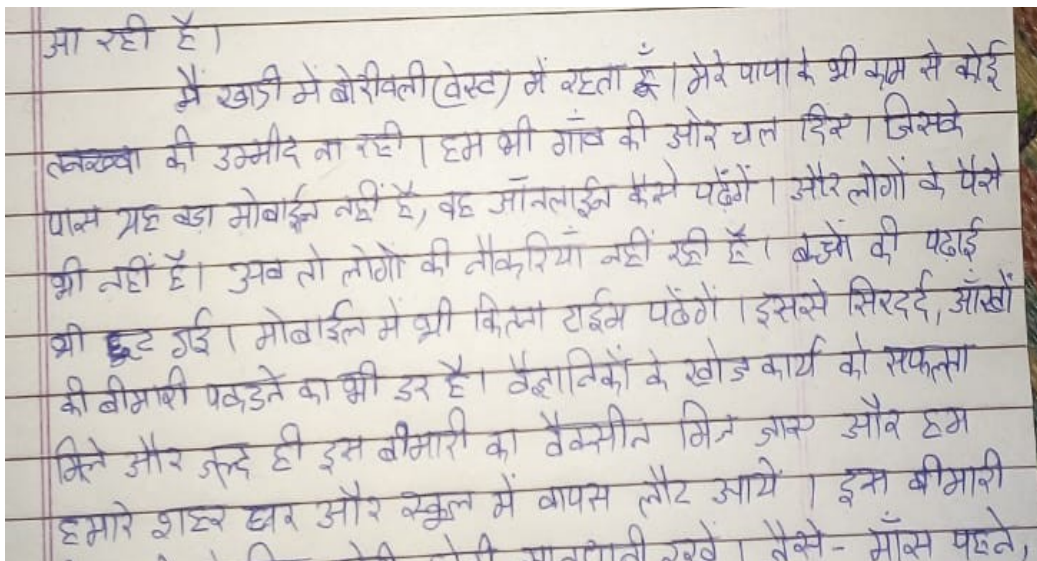 आ रही है।
मैं खाडी में बोरीवली (वेस्ट) में रहता हूँ। मेरे पापा के भी काम से कोई
तनख्वा की उम्मीद ना रही। हम भी गाँव की ओर चल दिए। जिसके
पास यह बड़ा मोबाईल नहीं है, वह ऑनलाईन कैसे पढ़ेंगें। और लोगों के पैसे
भी नहीं है। अब तो लोगों की नौकरियाँ नहीं रही है। बच्चों की पढ़ाई
भी छूट गई। मोबाईल में भी कितना टाईम पढेंगें। इससे सिरदर्द, आँखों
की बीमारी पकडने का भी डर है। वैज्ञानिकों के खोज कार्य को सफलता
मिले और जल्द ही इस बीमारी का वैक्सीन मिल जाए और हम
हमारे शहर घर और स्कूल में वापस लौट आयें। इस बीमारी
सावधानी रखें। जैसे - मॉस पहने,